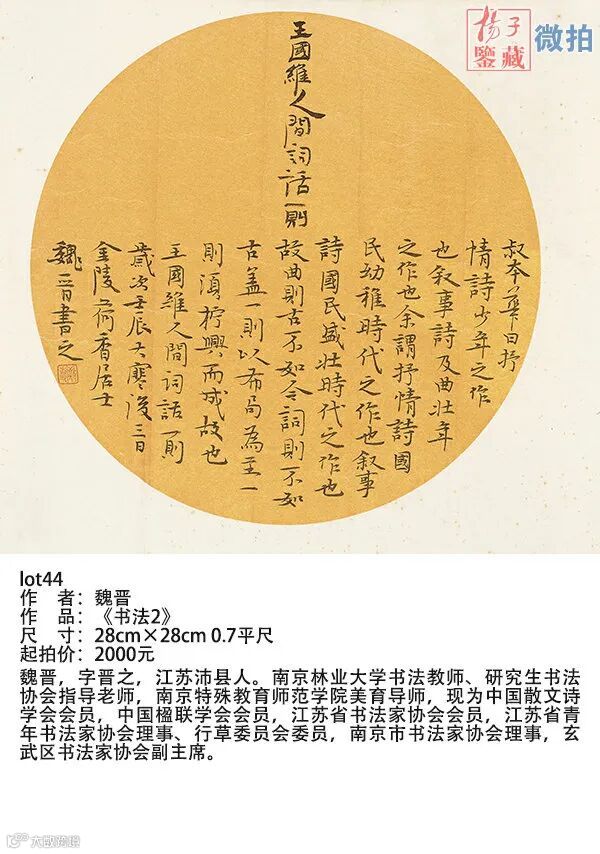 揚子
鑒藏
微拍
王國維人間詞話一則
叔本華曰抒
情詩少年之作
也叙事詩及曲壯年
之作也余謂抒情詩國
民幼稚時代之作也叙事
詩國民盛壯時代之作也
故曲則古不如今詞則不如
古盖一則以布局為主一
則須興而成故也
王國維人間詞話一則
歲次壬辰大寒後三日
金陵荷香居士
魏晋書之
lot44
作 者：魏晋
作 品：《书法2》
尺 寸：28cm×28cm 0.7平尺
起拍价：2000元
魏晋，字晋之，江苏沛县人。南京林业大学书法教师、研究生书法
协会指导老师，南京特殊教育师范学院美育导师，现为中国散文诗
学会会员，中国楹联学会会员，江苏省书法家协会会员，江苏省青
年书法家协会理事、行草委员会委员，南京市书法家协会理事，玄
武区书法家协会副主席。
大数跨境